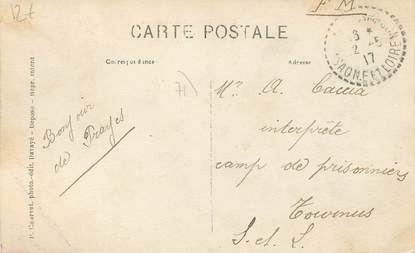 12+
F M
CARTE POSTALE
Correspondance
Adresse
8 *
2 - 5
17
SAONE ET LOIRE
71
Mr A. Caccia
interprète
camp de prisonniers
Tournus
S. et L.
Bonjour
de Prayes
photo-édit. Davayé - Déposé - Repr. interd